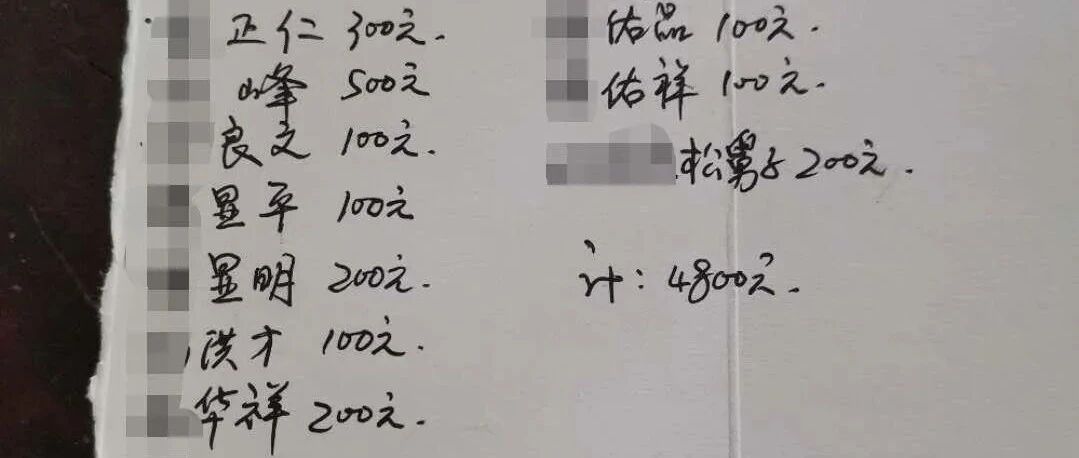 正仁 300元.
峰 500元
良文 100元.
显平 100元
显明 200元.
洪才 100元.
华祥 200元.
佑品 100元.
佑祥 100元.
松舅子 200元.
计: 4800元.